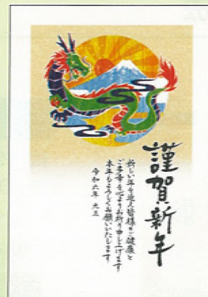 謹賀新年
新しい年を迎え皆様のご健康と
ご多幸を心よりお祈り申し上げます
本年もよろしくお願いいたします
令和六年 元旦